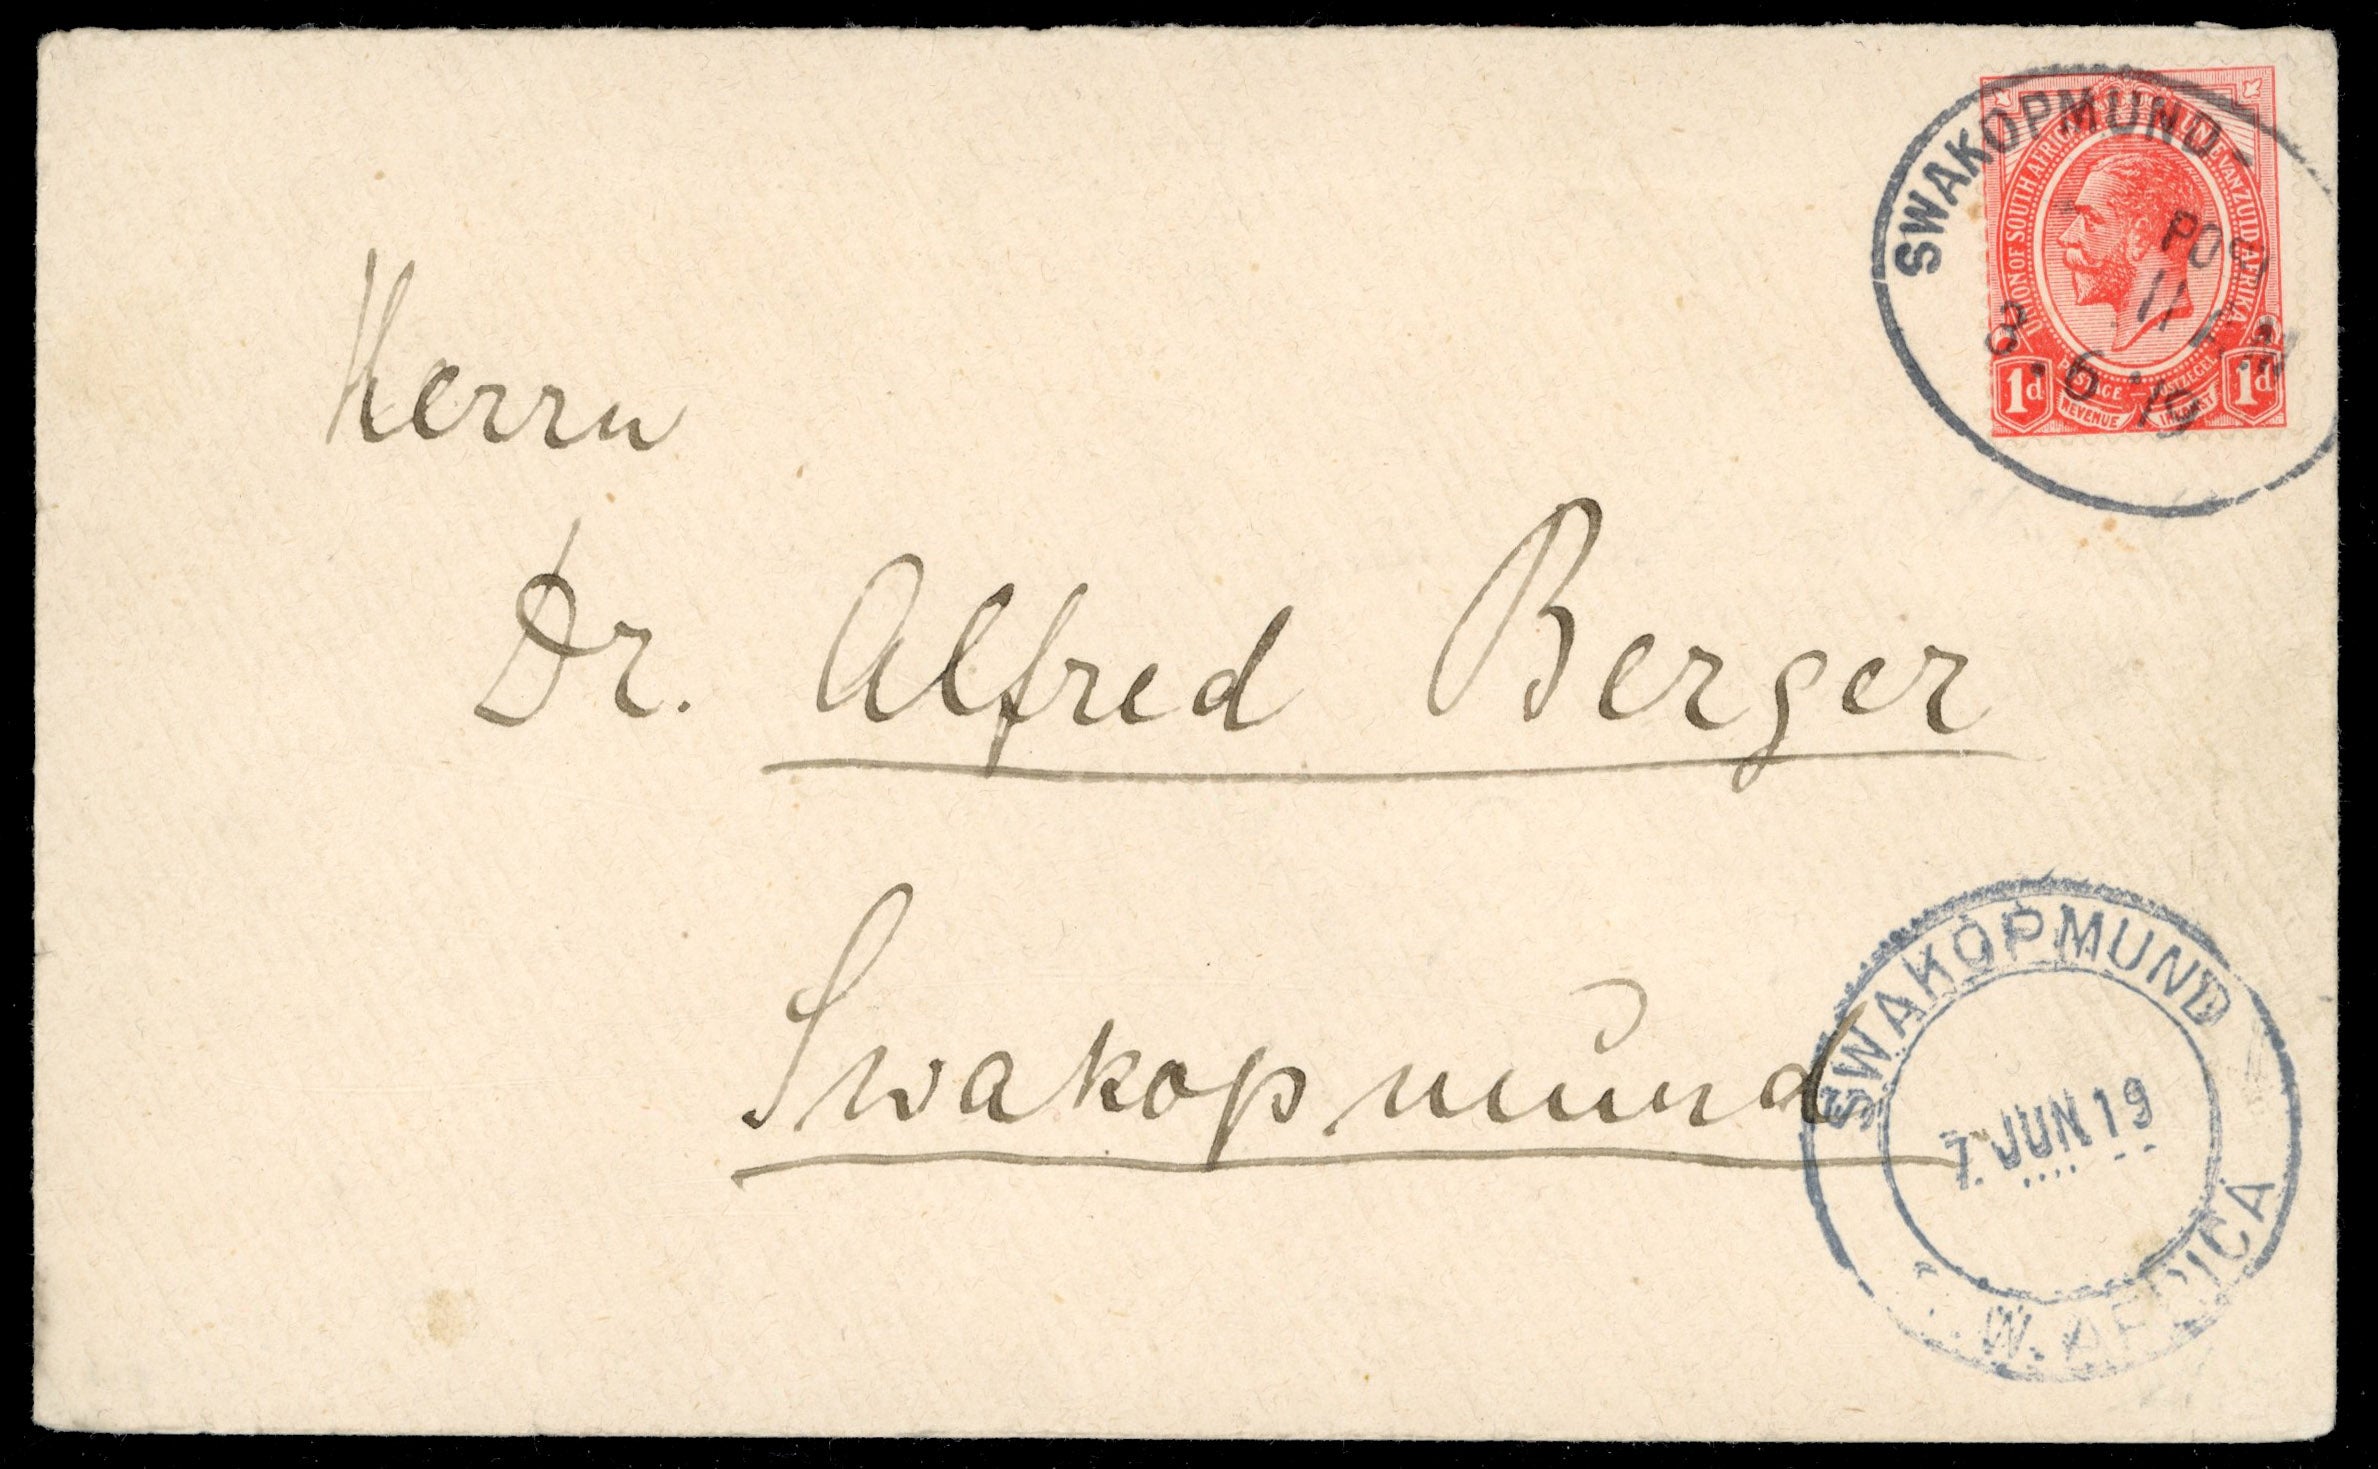 SWAKOPMUND-
11 A.M
3.6.19
UNION OF SOUTH AFRICA
UNIE VAN ZUID AFRIKA
POSTAGE POSTZEGEL
REVENUE INKOMST
1d 1d
Herrn
Dr. Alfred Berger
Swakopmund
SWAKOPMUND
7. JUN 19
W. AFRICA